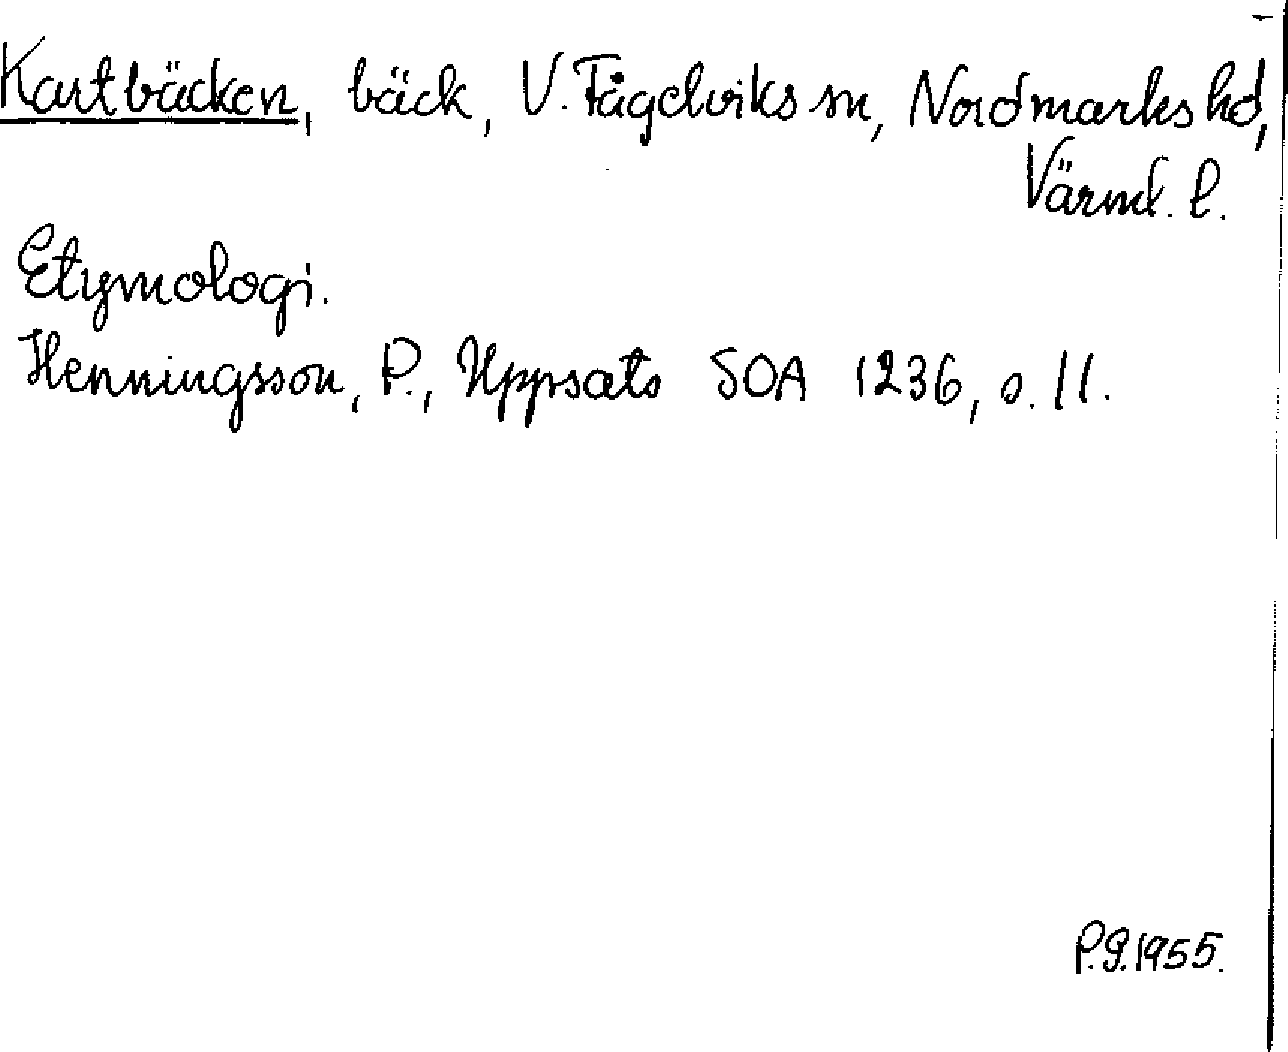 Kartbäcken, bäck, V. Fågelviks sn, Nordmarks hd,
Värml. l.
Etymologi.
Henningsson, P., Uppsats SOA 1236, s. 11.
P.G. 1955.